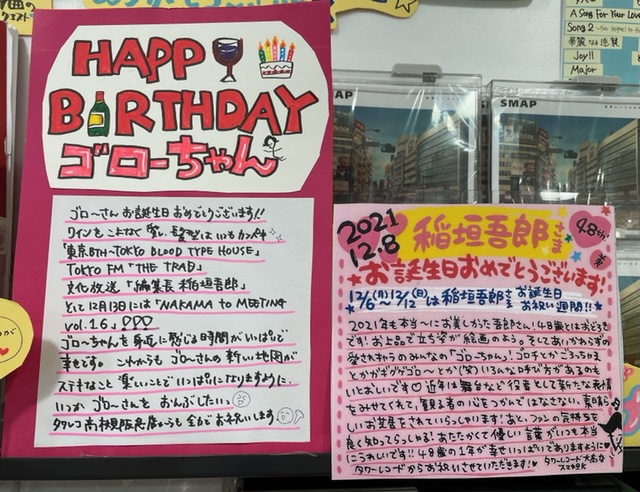 HAPPY
BIRTHDAY
ゴローちゃん
ゴロ〜さんお誕生日おめでとうございます!!
ワインをこよなく愛し、髪型はいつもカンペキ
「東京BTH〜TOKYO BLOOD TYPE HOUSE」
TOKYO FM「THE TRAD」
文化放送「編集長 稲垣吾郎」
そして12月13日には「NAKAMA to MEETING
vol.1.6」♡♡♡
ゴローちゃんを身近に感じる時間がいっぱいで
幸せです。これからもゴローさんの新しい地図が
ステキなこと楽しいことでいっぱいになりますように。
いつかゴローさんをおんぶしたい。
タワレコ高槻阪急店からも全力でお祝いします
2021
12.8
稲垣吾郎さま
48th.
★お誕生日おめでとうございます!
12/6(月)〜12/12(日)は稲垣吾郎さまお誕生日
お祝い週間!!
2021年も本当〜にお美しかった吾郎さん!48歳とはおどろき
です!お上品で立ち姿が絵画のよう。そしてあいかわらずの
愛されキャラのみんなの「ゴローちゃん」!ゴロチとかごろっちゃえ
とかガギグゲゴロ〜とか(笑)いろんな呼び方があるのも
いとおしいです♡近年は舞台など役者として新たな表情
をみせてくれて、観る者の心をつかんではなさない、素晴らし
いお芝居をされていらっしゃいます!あと、ファンの気持ちを
良く知ってらっしゃる!あたたかくて優しい言葉がいつも本当
にうれしいです!!48歳の1年が幸せいっぱいでありますように♡
タワーレコードからお祝いさせていただきます!♥
タワーレコード大高店
スマ担K
SMAP
SMAP
A Song For Your Love
Song 2
華麗なる逆襲
Joy!!
Major